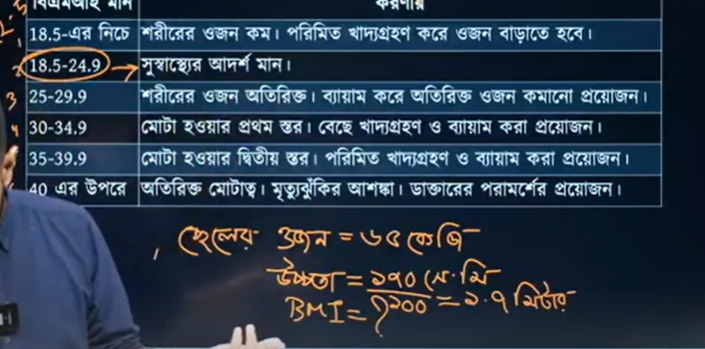 বিএমআই মান করণীয়
18.5-এর নিচে শরীরের ওজন কম। পরিমিত খাদ্যগ্রহণ করে ওজন বাড়াতে হবে।
18.5-24.9 সুস্বাস্থ্যের আদর্শ মান।
3 25-29.9 শরীরের ওজন অতিরিক্ত। ব্যায়াম করে অতিরিক্ত ওজন কমানো প্রয়োজন।
30-34.9 মোটা হওয়ার প্রথম স্তর। বেছে খাদ্যগ্রহণ ও ব্যায়াম করা প্রয়োজন।
35-39.9 মোটা হওয়ার দ্বিতীয় স্তর। পরিমিত খাদ্যগ্রহণ ও ব্যায়াম করা প্রয়োজন।
40 এর উপরে অতিরিক্ত মোটাত্ব। মৃত্যুঝুঁকির আশঙ্কা। ডাক্তারের পরামর্শের প্রয়োজন।
ছেলের ওজন = ৬৫ কেজি
উচ্চতা = ১৭০ সে.মি
BMI = ১০০ = ১.৭ মিটার